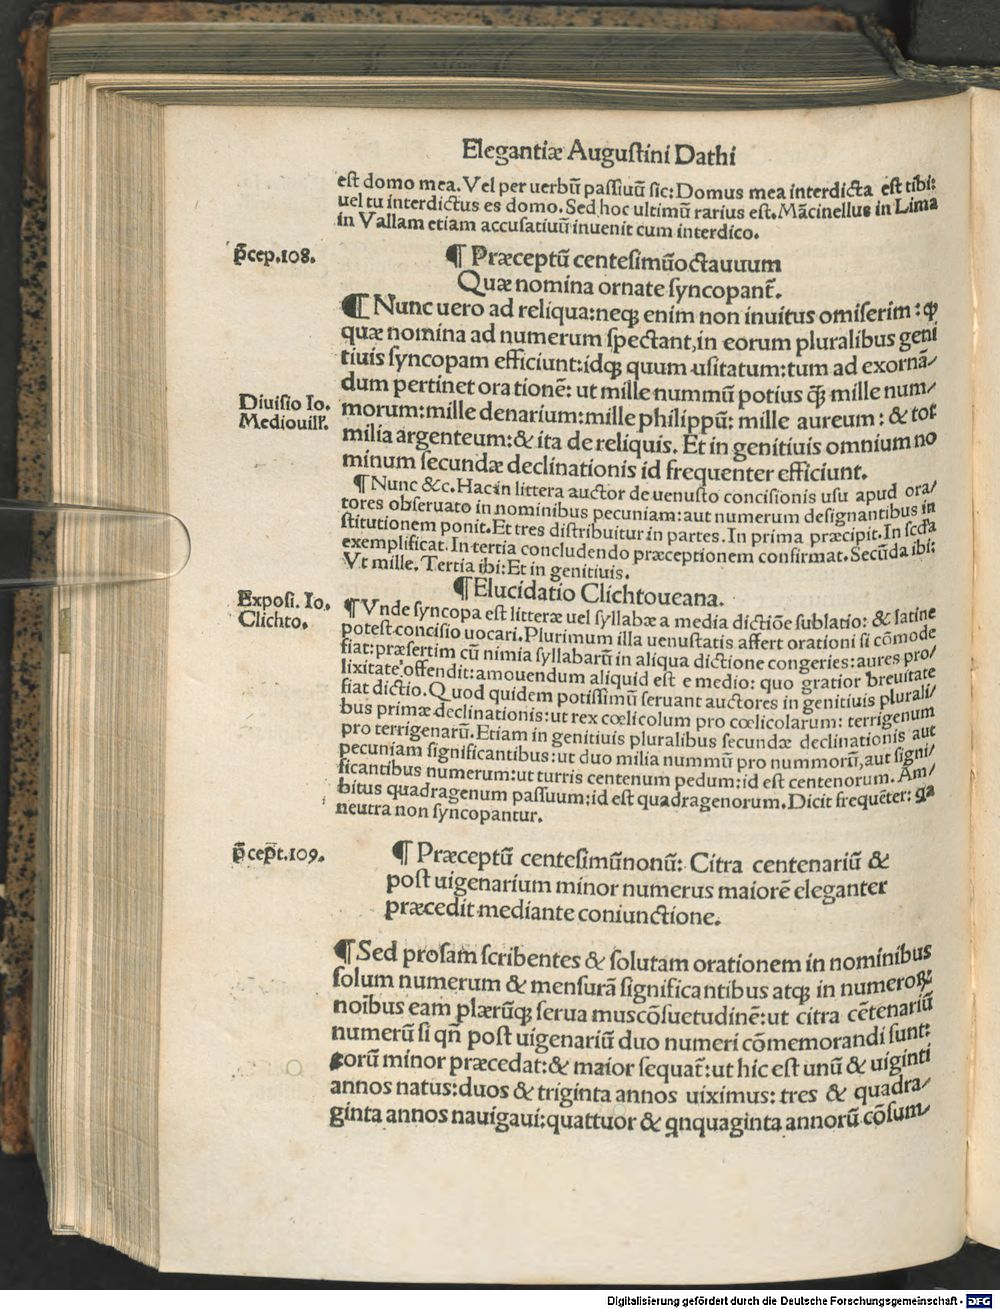 Elegantiæ Augustini Dathi
est domo mea. Vel per uerbū passiuū sic: Domus mea interdicta est tibi:
uel tu interdictus es domo. Sed hoc ultimū rarius est. Mācinellus in Lima
in Vallam etiam accusatiuū inuenit cum interdico.
p̄cep.108.
¶ Præceptū centesimūoctauuum
Quæ nomina ornate syncopant̄.
¶ Nunc uero ad reliqua:neqꝫ enim non inuitus omiserim: ꝙ
quæ nomina ad numerum spectant,in eorum pluralibus geni
tiuis syncopam efficiunt:idqꝫ quum usitatum:tum ad exornā/
dum pertinet orationē: ut mille nummū potius q̄ꝫ mille num/
Diuisio Io.
Mediouill'.
morum:mille denarium:mille philippū: mille aureum: & tot
milia argenteum:& ita de reliquis. Et in genitiuis omnium no
minum secundæ declinationis id frequenter efficiunt.
¶ Nunc &c. Hac in littera auctor de uenusto concisionis usu apud ora/
tores obseruato in nominibus pecuniam:aut numerum designantibus in
stitutionem ponit. Et tres distribuitur in partes. In prima præcipit. In scd'a
exemplificat. In tertia concludendo præceptionem confirmat. Secūda ibi:
Vt mille. Tertia ibi:Et in genitiuis.
¶ Elucidatio Clichtoueana.
Exposi. Io.
Clichto.
¶ Vnde syncopa est litteræ uel syllabæ a media dictiōe sublatio: & latine
potest concisio uocari. Plurimum illa uenustatis affert orationi si cōmode
fiat:præsertim cū nimia syllabarū in aliqua dictione congeries:aures pro/
lixitate offendit:amouendum aliquid est e medio: quo gratior breuitate
fiat dictio. Quod quidem potissimū seruant auctores in genitiuis plurali/
bus primæ declinationis:ut rex cœlicolum pro cœlicolarum: terrigenum
pro terrigenarū. Etiam in genitiuis pluralibus secundæ declinationis aut
pecuniam significantibus:ut duo milia nummū pro nummorū,aut signi/
ficantibus numerum:ut turris centenum pedum:id est centenorum. Am/
bitus quadragenum passuum:id est quadragenorum. Dicit frequēter: qa
neutra non syncopantur.
p̄cep̄t.109.
¶ Præceptū centesimūnonū: Citra centenariū &
post uigenarium minor numerus maiorē eleganter
præcedit mediante coniunctione.
¶ Sed prosam scribentes & solutam orationem in nominibus
solum numerum & mensurā significantibus atqꝫ in numeroꝝ
noībus eam plærūqꝫ serua muscōsuetudinē:ut citra cētenariū
numerū si qn̄ post uigenariū duo numeri cōmemorandi sunt:
eorū minor præcedat:& maior sequat̄:ut hic est unū & uiginti
annos natus:duos & triginta annos uiximus: tres & quadra/
ginta annos nauigaui:quattuor & qnquaginta annorū cōsum/
Digitalisierung gefördert durch die Deutsche Forschungsgemeinschaft - DFG